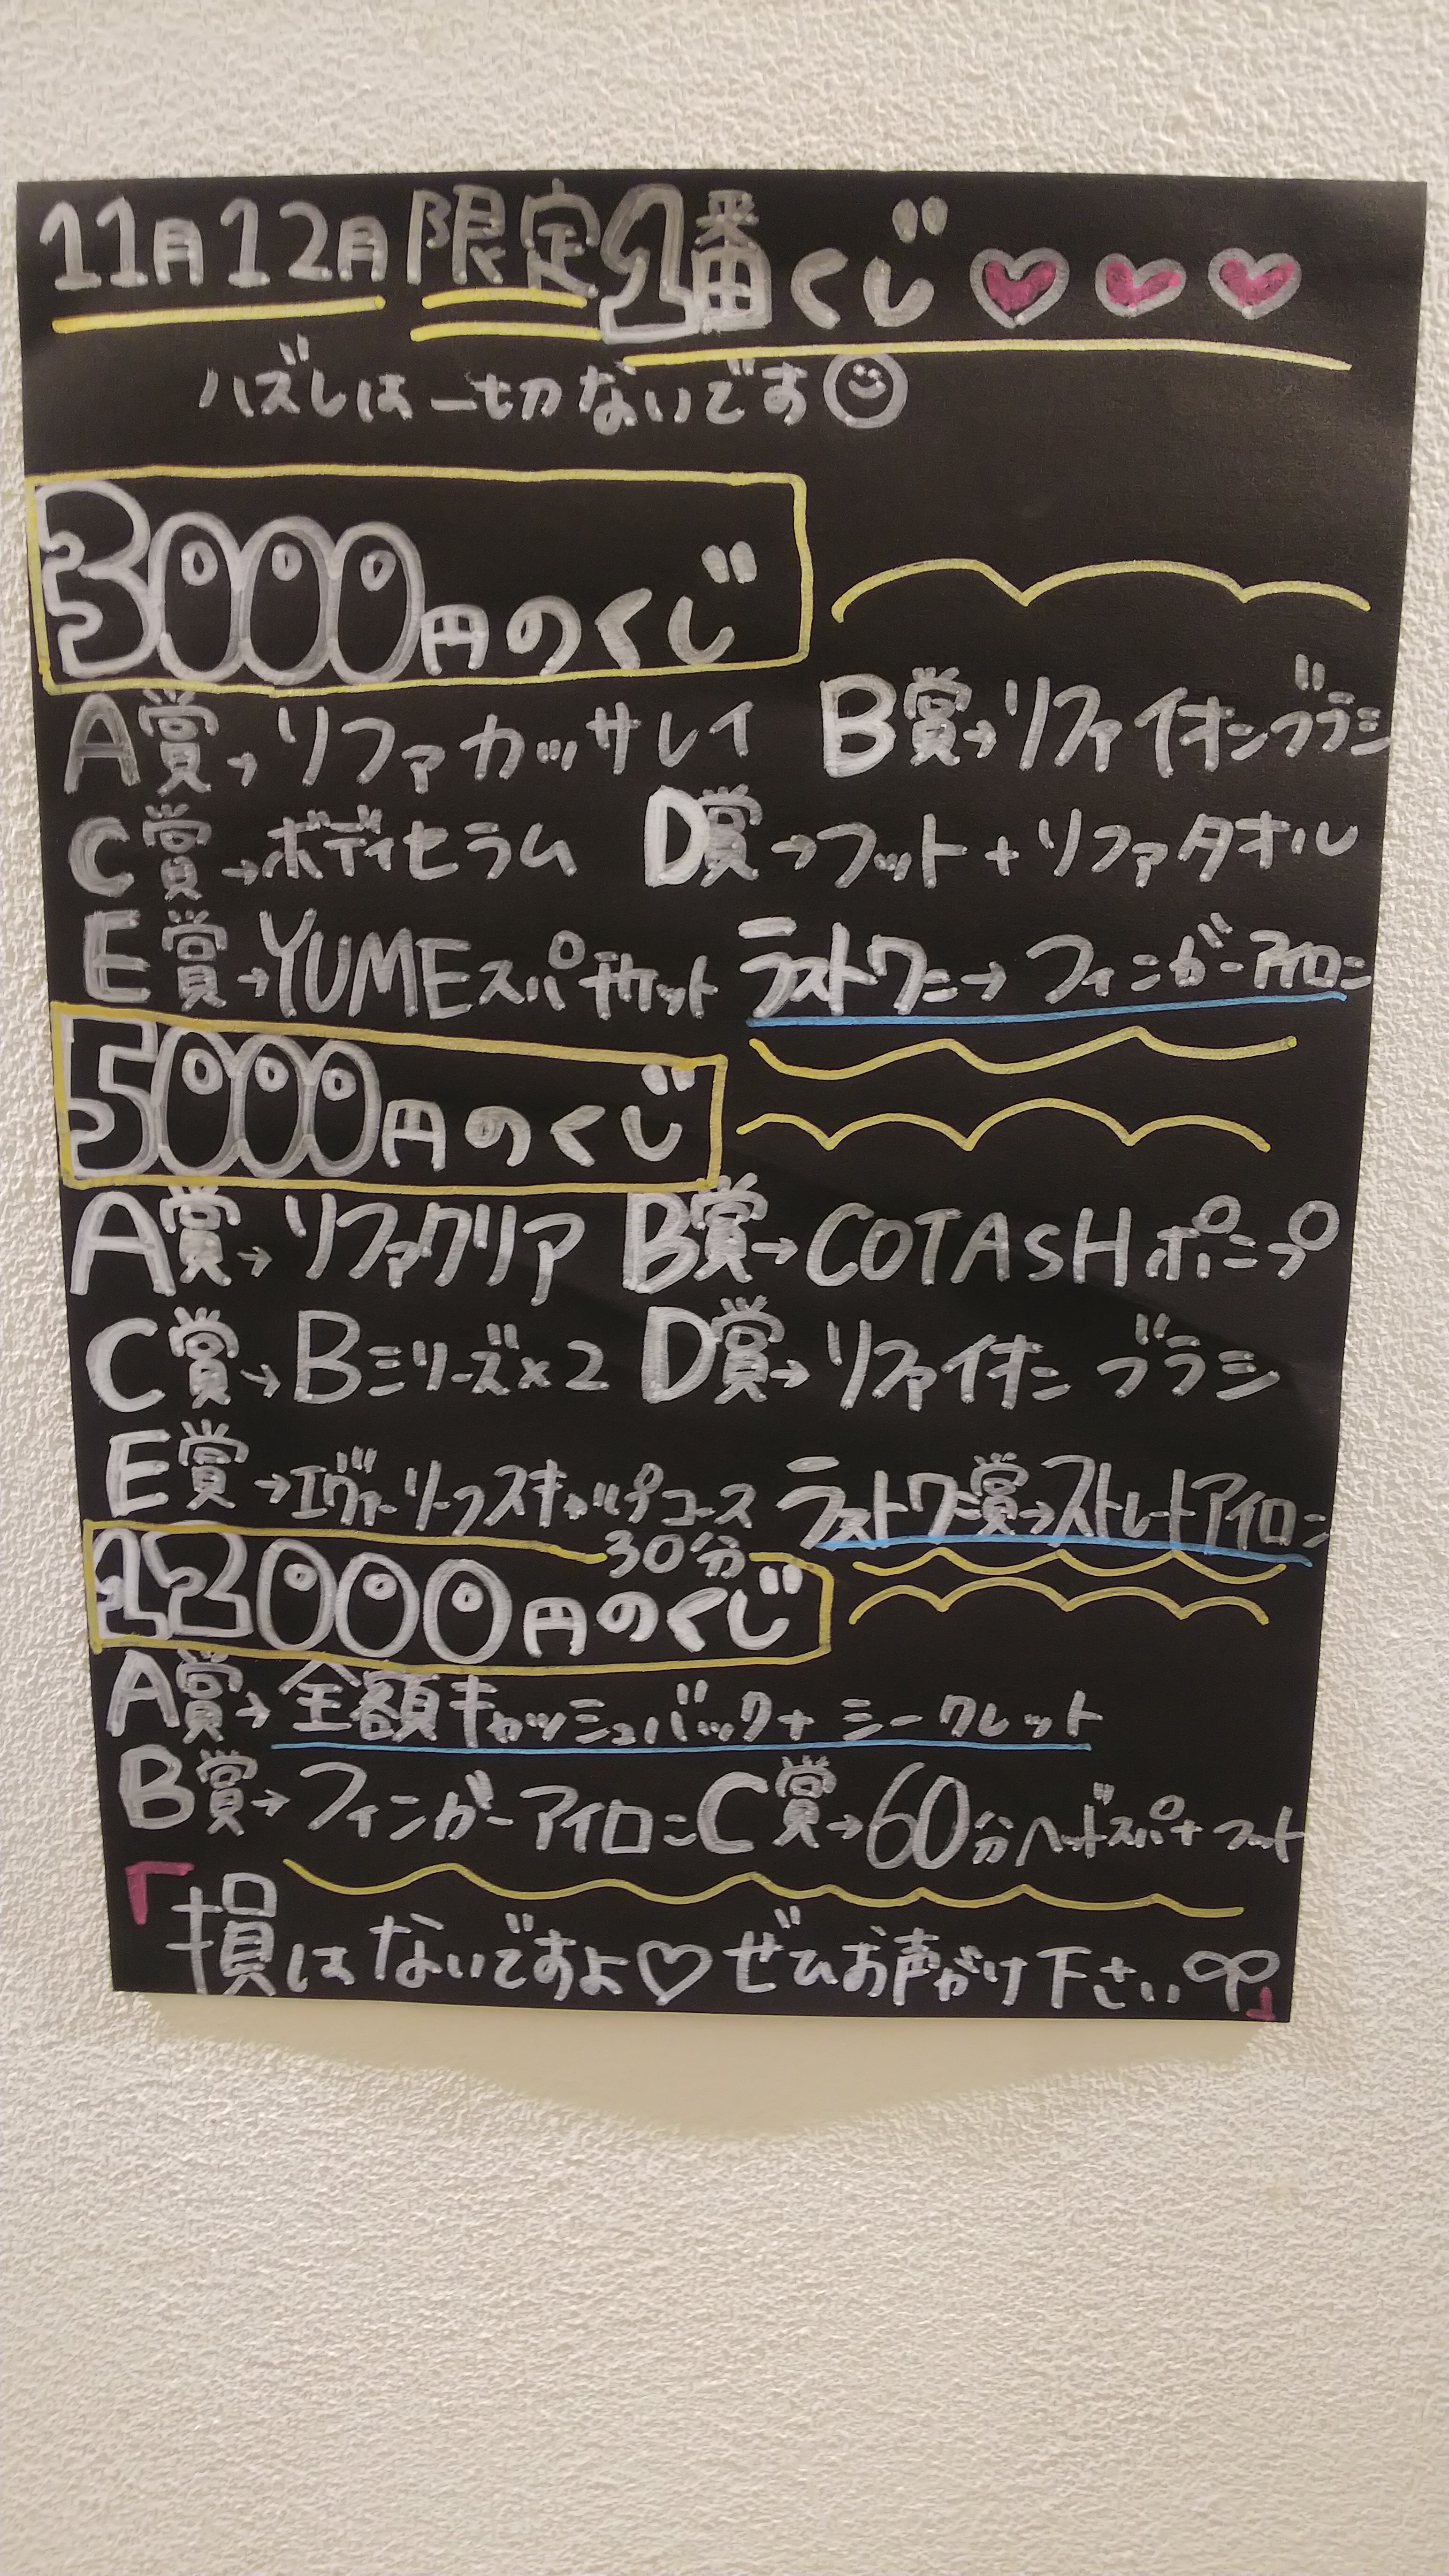 11月12月限定1番くじ
ハズレは一切ないです
3000円のくじ
A賞→リファカッサレイ B賞→リファイオンブラシ
C賞→ボディセラム D賞→フット+リファタオル
E賞→YUMEスパチケット ラストワン→フィンガーアイロン
5000円のくじ
A賞→リファクリア B賞→COTASHポンプ
C賞→Bシリーズ×2 D賞→リファイオンブラシ
E賞→エヴァーリーフスキャルプコース ラストワン賞→ストレートアイロン
30分
12000円のくじ
A賞→全額キャッシュバック+シークレット
B賞→フィンガーアイロン C賞→60分ヘッドスパ+フット
「損はないですよ♡ぜひお声がけ下さい」